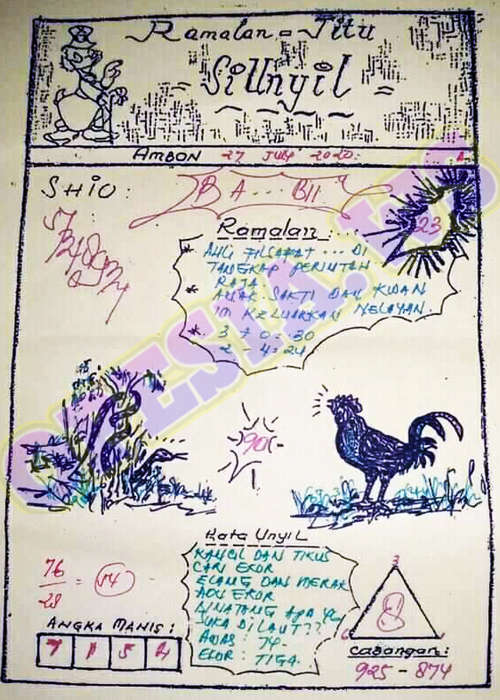 Ramalan = Jitu
SiUnyil
AMBON 27 JULY 2020.
SHIO:
BA... BII
23
Ramalan:...
* AHLI FILSAFAT... DI
TANGKAP PERINTAH
RAJA
* ANAK SAKTI DAN KWAN
IN KELUARKAN NELAYAN.
* 3 + 0 = 30
2 4 = 24
90-
Kata Unyil
KANCIL DAN TIKUS
CARI EKOR
ELANG DAN MERAK
ADU EKOR
BINATANG APA YG
SUKA DI LAUT??
AWAS: 74.
EKOR: TIGA.
76
28 = 54
ANGKA MANIS:
7 1 5 4
3
8
6
Cadangan:
925 - 874